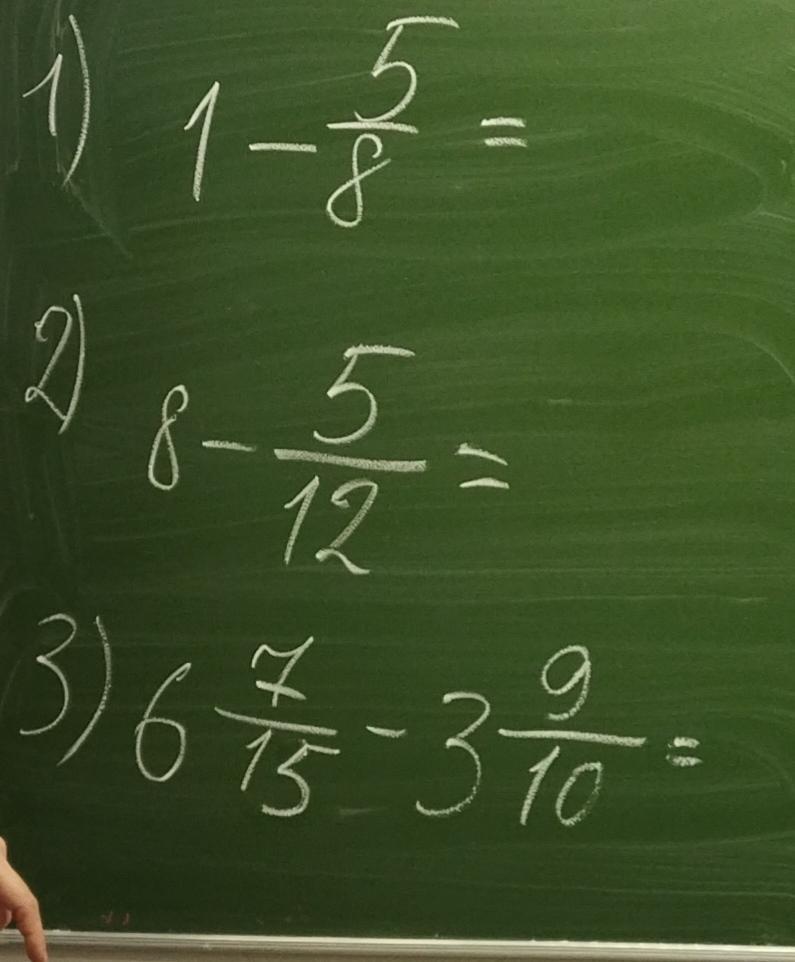 1) 1 - 5/8 =
2) 8 - 5/12 =
3) 6 7/15 - 3 9/10 =